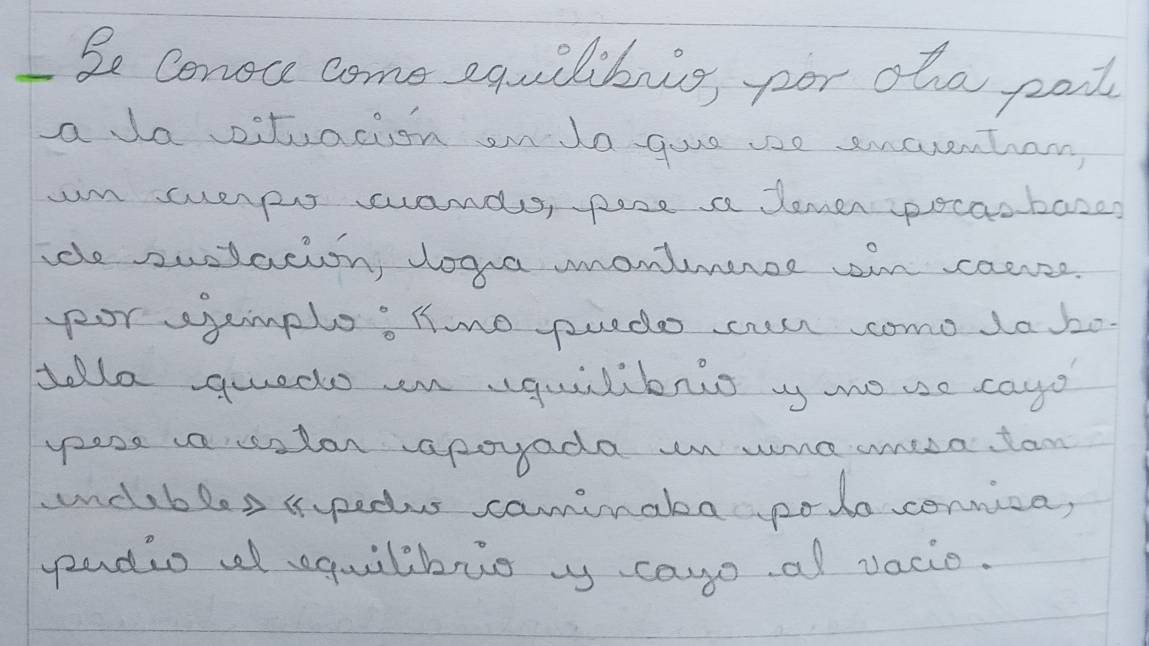 - Se conoce como equilibrio, por otra parte
a la situación en la que se encuentran,
un cuerpo cuando, pese a tener pocas bases
de sustación, logra mantenerse sin caerse.
por ejemplo: «no puedo creer como la bo-
tella quedo en equilibrio y no se cayó
pese a estar apoyada en una mesa tan
endeble» «pedro caminaba po la cornisa,
perdio el equilibrio y cayo al vacio.